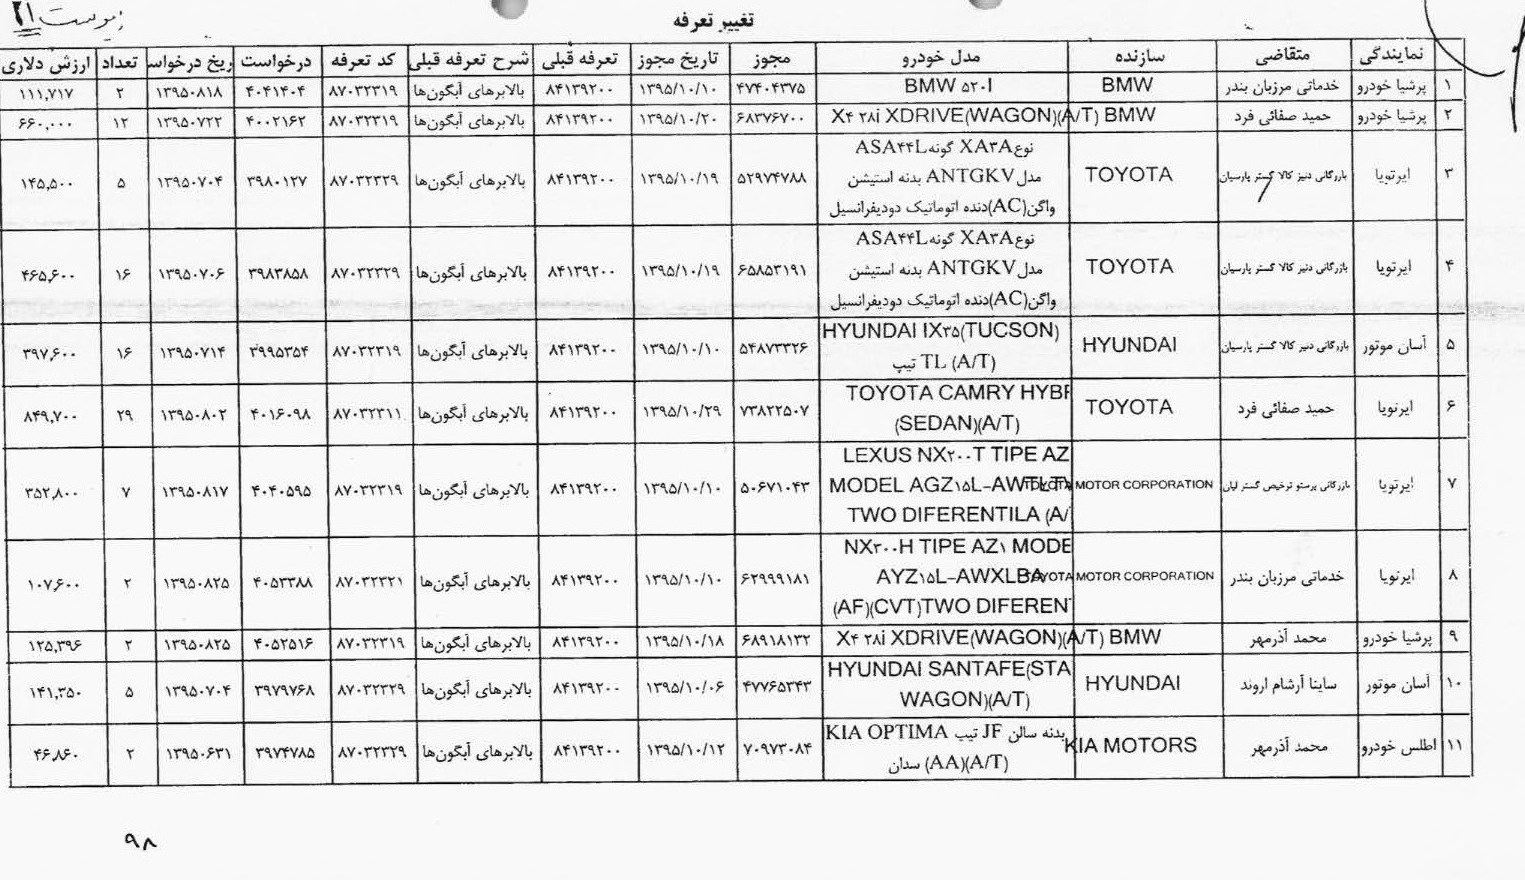 پیوست ۲۱
تغییر تعرفه
نمایندگی متقاضی سازنده مدل خودرو مجوز تاریخ مجوز تعرفه قبلی شرح تعرفه قبلی کد تعرفه درخواست ریخ درخواس تعداد ارزش دلاری
۱ پرشیا خودرو خدماتی مرزبان بندر BMW BMW ۵۲۰I ۴۷۴۰۴۳۷۵ ۱۳۹۵/۱۰/۱۰ ۸۴۱۳۹۲۰۰ بالابرهای آبگون‌ها ۸۷۰۳۲۳۱۹ ۴۰۴۱۴۰۴ ۱۳۹۵۰۸۱۸ ۲ ۱۱۱,۷۱۷
۲ پرشیا خودرو حمید صفائی فرد BMW X۴ ۲۸i XDRIVE(WAGON)(A/T) ۶۸۳۷۶۷۰۰ ۱۳۹۵/۱۰/۲۰ ۸۴۱۳۹۲۰۰ بالابرهای آبگون‌ها ۸۷۰۳۲۳۱۹ ۴۰۰۲۱۶۲ ۱۳۹۵۰۷۲۲ ۱۲ ۶۶۰,۰۰۰
نوع XA۳A گونه ASA۴۴L
۳ ایرتویا بازرگانی دنیز کالا گستر پارسیان TOYOTA مدل ANTGKV بدنه استیشن ۵۲۹۷۴۷۸۸ ۱۳۹۵/۱۰/۱۹ ۸۴۱۳۹۲۰۰ بالابرهای آبگون‌ها ۸۷۰۳۲۳۲۹ ۳۹۸۰۱۲۷ ۱۳۹۵۰۷۰۴ ۵ ۱۴۵,۵۰۰
واگن(AC)دنده اتوماتیک دودیفرانسیل
نوع XA۳A گونه ASA۴۴L
۴ ایرتویا بازرگانی دنیز کالا گستر پارسیان TOYOTA مدل ANTGKV بدنه استیشن ۶۵۸۵۳۱۹۱ ۱۳۹۵/۱۰/۱۹ ۸۴۱۳۹۲۰۰ بالابرهای آبگون‌ها ۸۷۰۳۲۳۲۹ ۳۹۸۳۸۵۸ ۱۳۹۵۰۷۰۶ ۱۶ ۴۶۵,۶۰۰
واگن(AC)دنده اتوماتیک دودیفرانسیل
HYUNDAI IX۳۵(TUCSON)
۵ آسان موتور بازرگانی دنیز کالا گستر پارسیان HYUNDAI تیپ TL (A/T) ۵۴۸۷۳۳۲۶ ۱۳۹۵/۱۰/۱۰ ۸۴۱۳۹۲۰۰ بالابرهای آبگون‌ها ۸۷۰۳۲۳۱۹ ۳۹۹۵۳۵۴ ۱۳۹۵۰۷۱۴ ۱۶ ۳۹۷,۶۰۰
TOYOTA CAMRY HYBF
۶ ایرتویا حمید صفائی فرد TOYOTA (SEDAN)(A/T) ۷۳۸۲۲۵۰۷ ۱۳۹۵/۱۰/۲۹ ۸۴۱۳۹۲۰۰ بالابرهای آبگون‌ها ۸۷۰۳۲۳۱۱ ۴۰۱۶۰۹۸ ۱۳۹۵۰۸۰۲ ۲۹ ۸۴۹,۷۰۰
LEXUS NX۲۰۰T TIPE AZ
۷ ایرتویا بازرگانی پرستو ترخیص گستر لیان TOYOTA MOTOR CORPORATION MODEL AGZ۱۵L-AWTLT ۵۰۶۷۱۰۴۳ ۱۳۹۵/۱۰/۱۰ ۸۴۱۳۹۲۰۰ بالابرهای آبگون‌ها ۸۷۰۳۲۳۱۹ ۴۰۴۰۵۹۵ ۱۳۹۵۰۸۱۷ ۷ ۳۵۲,۸۰۰
TWO DIFERENTILA (A/
NX۳۰۰H TIPE AZ۱ MODE
۸ ایرتویا خدماتی مرزبان بندر TOYOTA MOTOR CORPORATION AYZ۱۵L-AWXLBA ۶۲۹۹۹۱۸۱ ۱۳۹۵/۱۰/۱۰ ۸۴۱۳۹۲۰۰ بالابرهای آبگون‌ها ۸۷۰۳۲۳۲۱ ۴۰۵۳۳۸۸ ۱۳۹۵۰۸۲۵ ۲ ۱۰۷,۶۰۰
(AF)(CVT)TWO DIFEREN
۹ پرشیا خودرو محمد آذرمهر BMW X۴ ۲۸i XDRIVE(WAGON)(A/T) ۶۸۹۱۸۱۳۲ ۱۳۹۵/۱۰/۱۸ ۸۴۱۳۹۲۰۰ بالابرهای آبگون‌ها ۸۷۰۳۲۳۱۹ ۴۰۵۲۵۱۶ ۱۳۹۵۰۸۲۵ ۲ ۱۲۵,۳۹۶
HYUNDAI SANTAFE(STA
۱۰ آسان موتور ساینا آرشام اروند HYUNDAI WAGON)(A/T) ۴۷۷۶۵۳۴۳ ۱۳۹۵/۱۰/۰۶ ۸۴۱۳۹۲۰۰ بالابرهای آبگون‌ها ۸۷۰۳۲۳۲۹ ۳۹۷۹۷۶۸ ۱۳۹۵۰۷۰۴ ۵ ۱۴۱,۳۵۰
KIA OPTIMA تیپ JF بدنه سالن
۱۱ اطلس خودرو محمد آذرمهر KIA MOTORS سدان (AA)(A/T) ۷۰۹۷۳۰۸۴ ۱۳۹۵/۱۰/۱۲ ۸۴۱۳۹۲۰۰ بالابرهای آبگون‌ها ۸۷۰۳۲۳۲۹ ۳۹۷۴۷۸۵ ۱۳۹۵۰۶۳۱ ۲ ۴۶,۸۶۰
۹۸